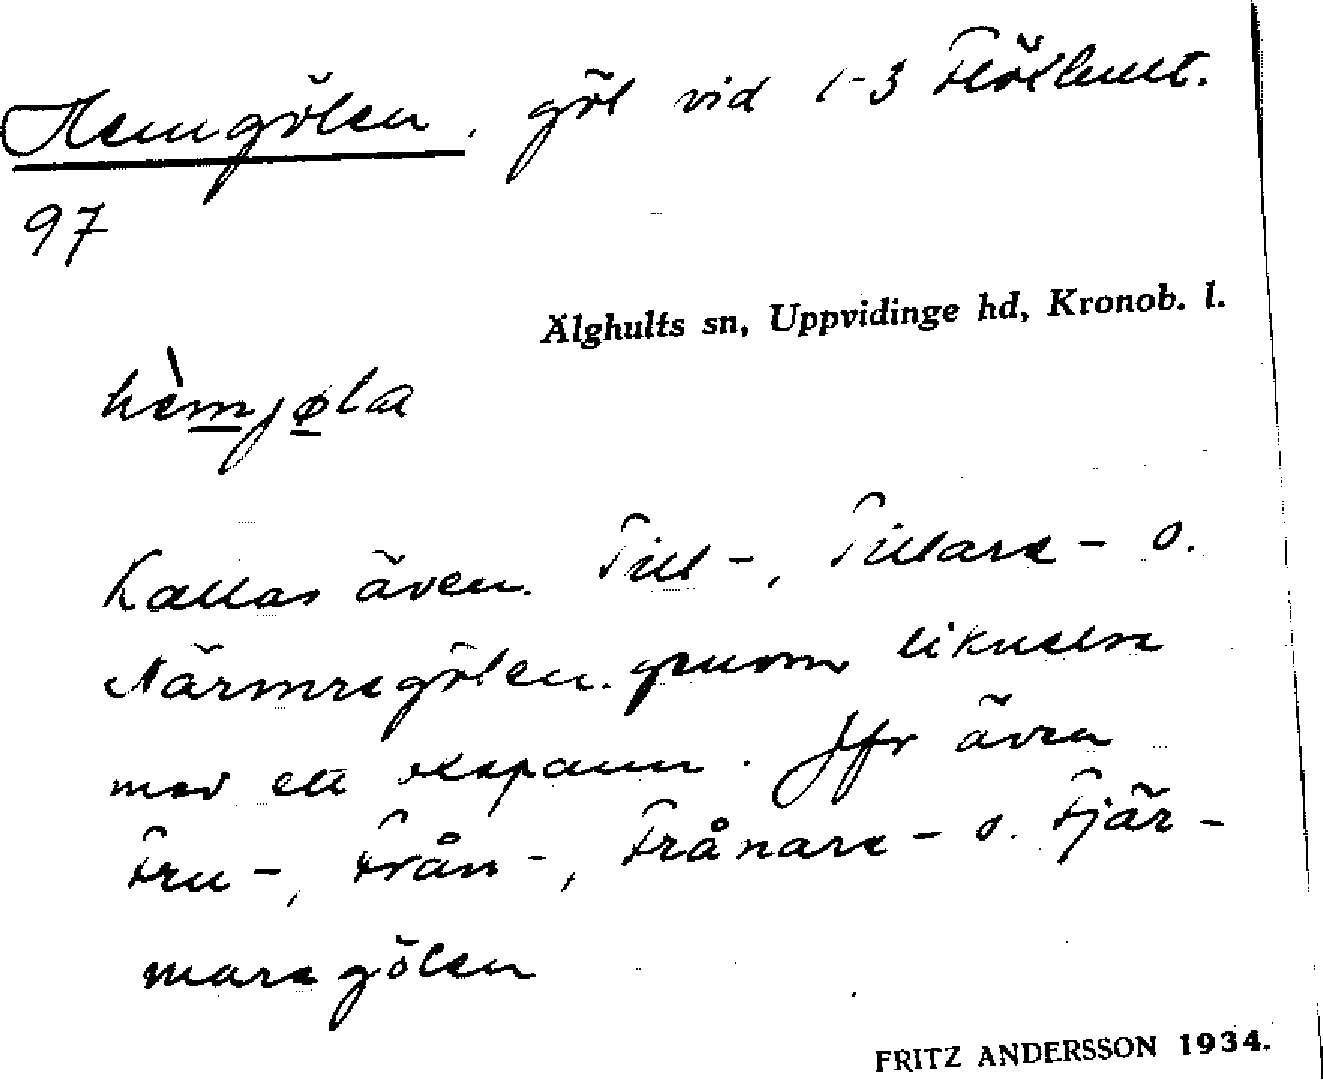 Hemgölen, göl vid 1-3 Flöxhult.
97
Älghults sn, Uppvidinge hd, Kronob. l.
hèmjøla
Kallas även Till-, Tillare- o.
Närmregölen. genom liknelse
med ett oxspann. Jfr även
Fru-, Från-, Frånare- o. Fjär-
maregölen
FRITZ ANDERSSON 1934.